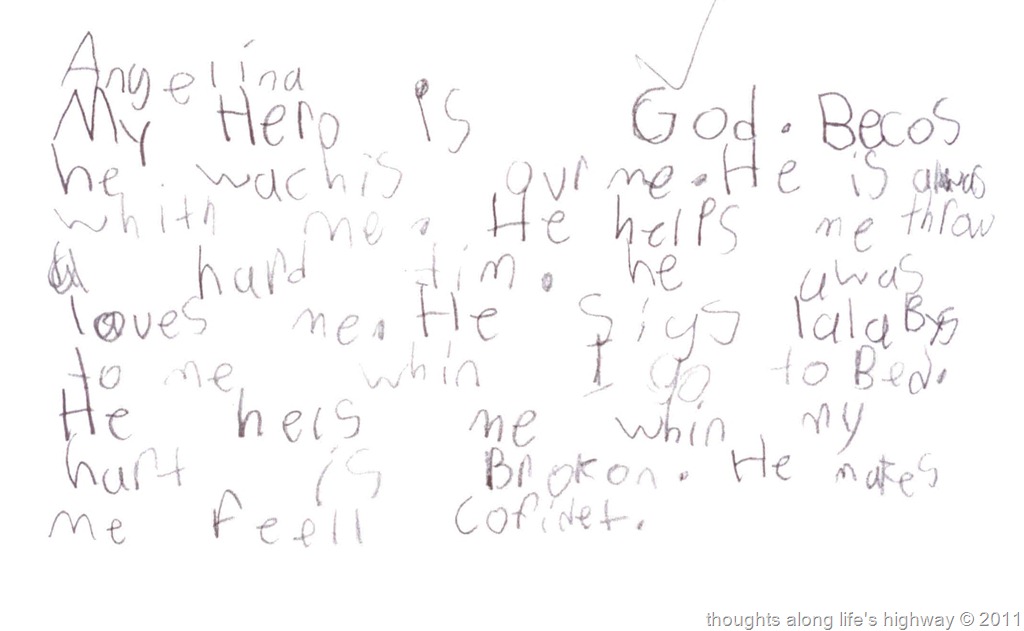 Angelina
My Hero is God. Becos
he wachis ovr me. He is alwas
whith me. He helps me throw
a hard tim. he awas
loves me. He sigs lalaBys
to me whin I go to Bed.
He hels me whin my
hart is Brokon. He makes
me feell cofidet.
thoughts along life's highway © 2011